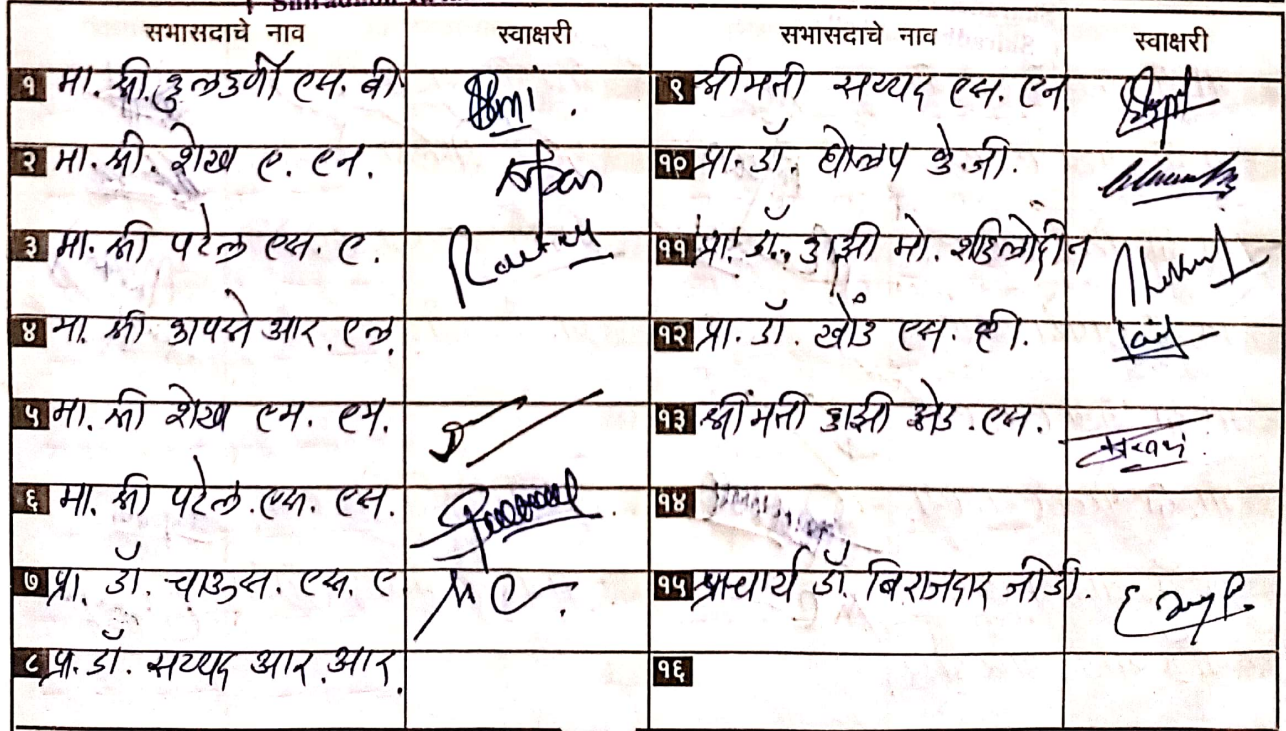 सभासदाचे नाव स्वाक्षरी सभासदाचे नाव स्वाक्षरी
१ मा. श्री. कुलकर्णी एस. बी. ९ श्रीमती सय्यद एस. एन
२ मा. श्री. शेख ए. एन. १० प्रा. डॉ. घोलप के. जी.
३ मा. श्री पटेल एस. ए. ११ प्रा. डॉ. काझी मो.
४ मा. श्री आर. एल. १२ प्रा. डॉ. एस. व्ही.
५ मा. श्री शेख एम. एम. १३ श्रीमती काझी झेड. एस.
६ मा. श्री पटेल. एस. एस. १४
७ प्रा. डॉ. चाऊस. एस. ए १५ प्राचार्य डॉ. बिराजदार जी.डी.
८ प्रा. डॉ. सय्यद आर. आर. १६